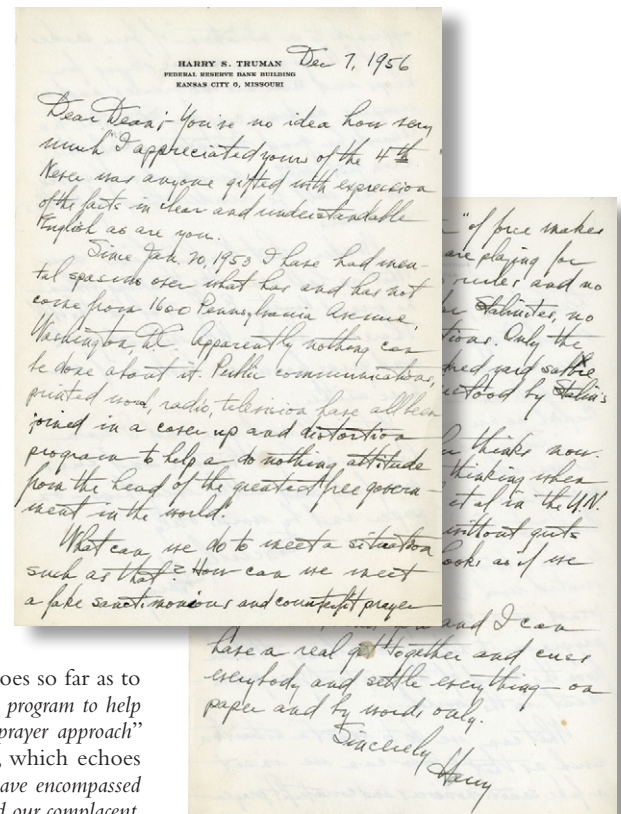 HARRY S. TRUMAN
FEDERAL RESERVE BANK BUILDING
KANSAS CITY 6, MISSOURI
Dec 7, 1956
Dear Dean;- You've no idea how very
much I appreciated yours of the 4th
Never was anyone gifted with expression
of the facts in clear and understandable
English as are you.
Since Jan. 20, 1953 I have had men-
tal spasms over what has and has not
come from 1600 Pennsylvania Avenue,
Washington, D.C. Apparently nothing can
be done about it. Public communications,
printed word, radio, television have all been
joined in a cover up and distortion
program to help a do nothing attitude
from the head of the greatest free govern-
ment in the world.
What can we do to meet a situation
such as that? How can we meet
a fake sanctimonious and counterfeit prayer
" of force makes
are playing for
rules and no
Stalinites, no
Only the
red yard
stood by Stalin's
thinks now.
thinking when
in the U.N.
without guts
looks as if we
and I can
have a real get together and cuss
everybody and settle everything – on
paper and by words only.
Sincerely
Harry
oes so far as to
program to help
prayer approach"
, which echoes
ave encompassed
d our complacent,